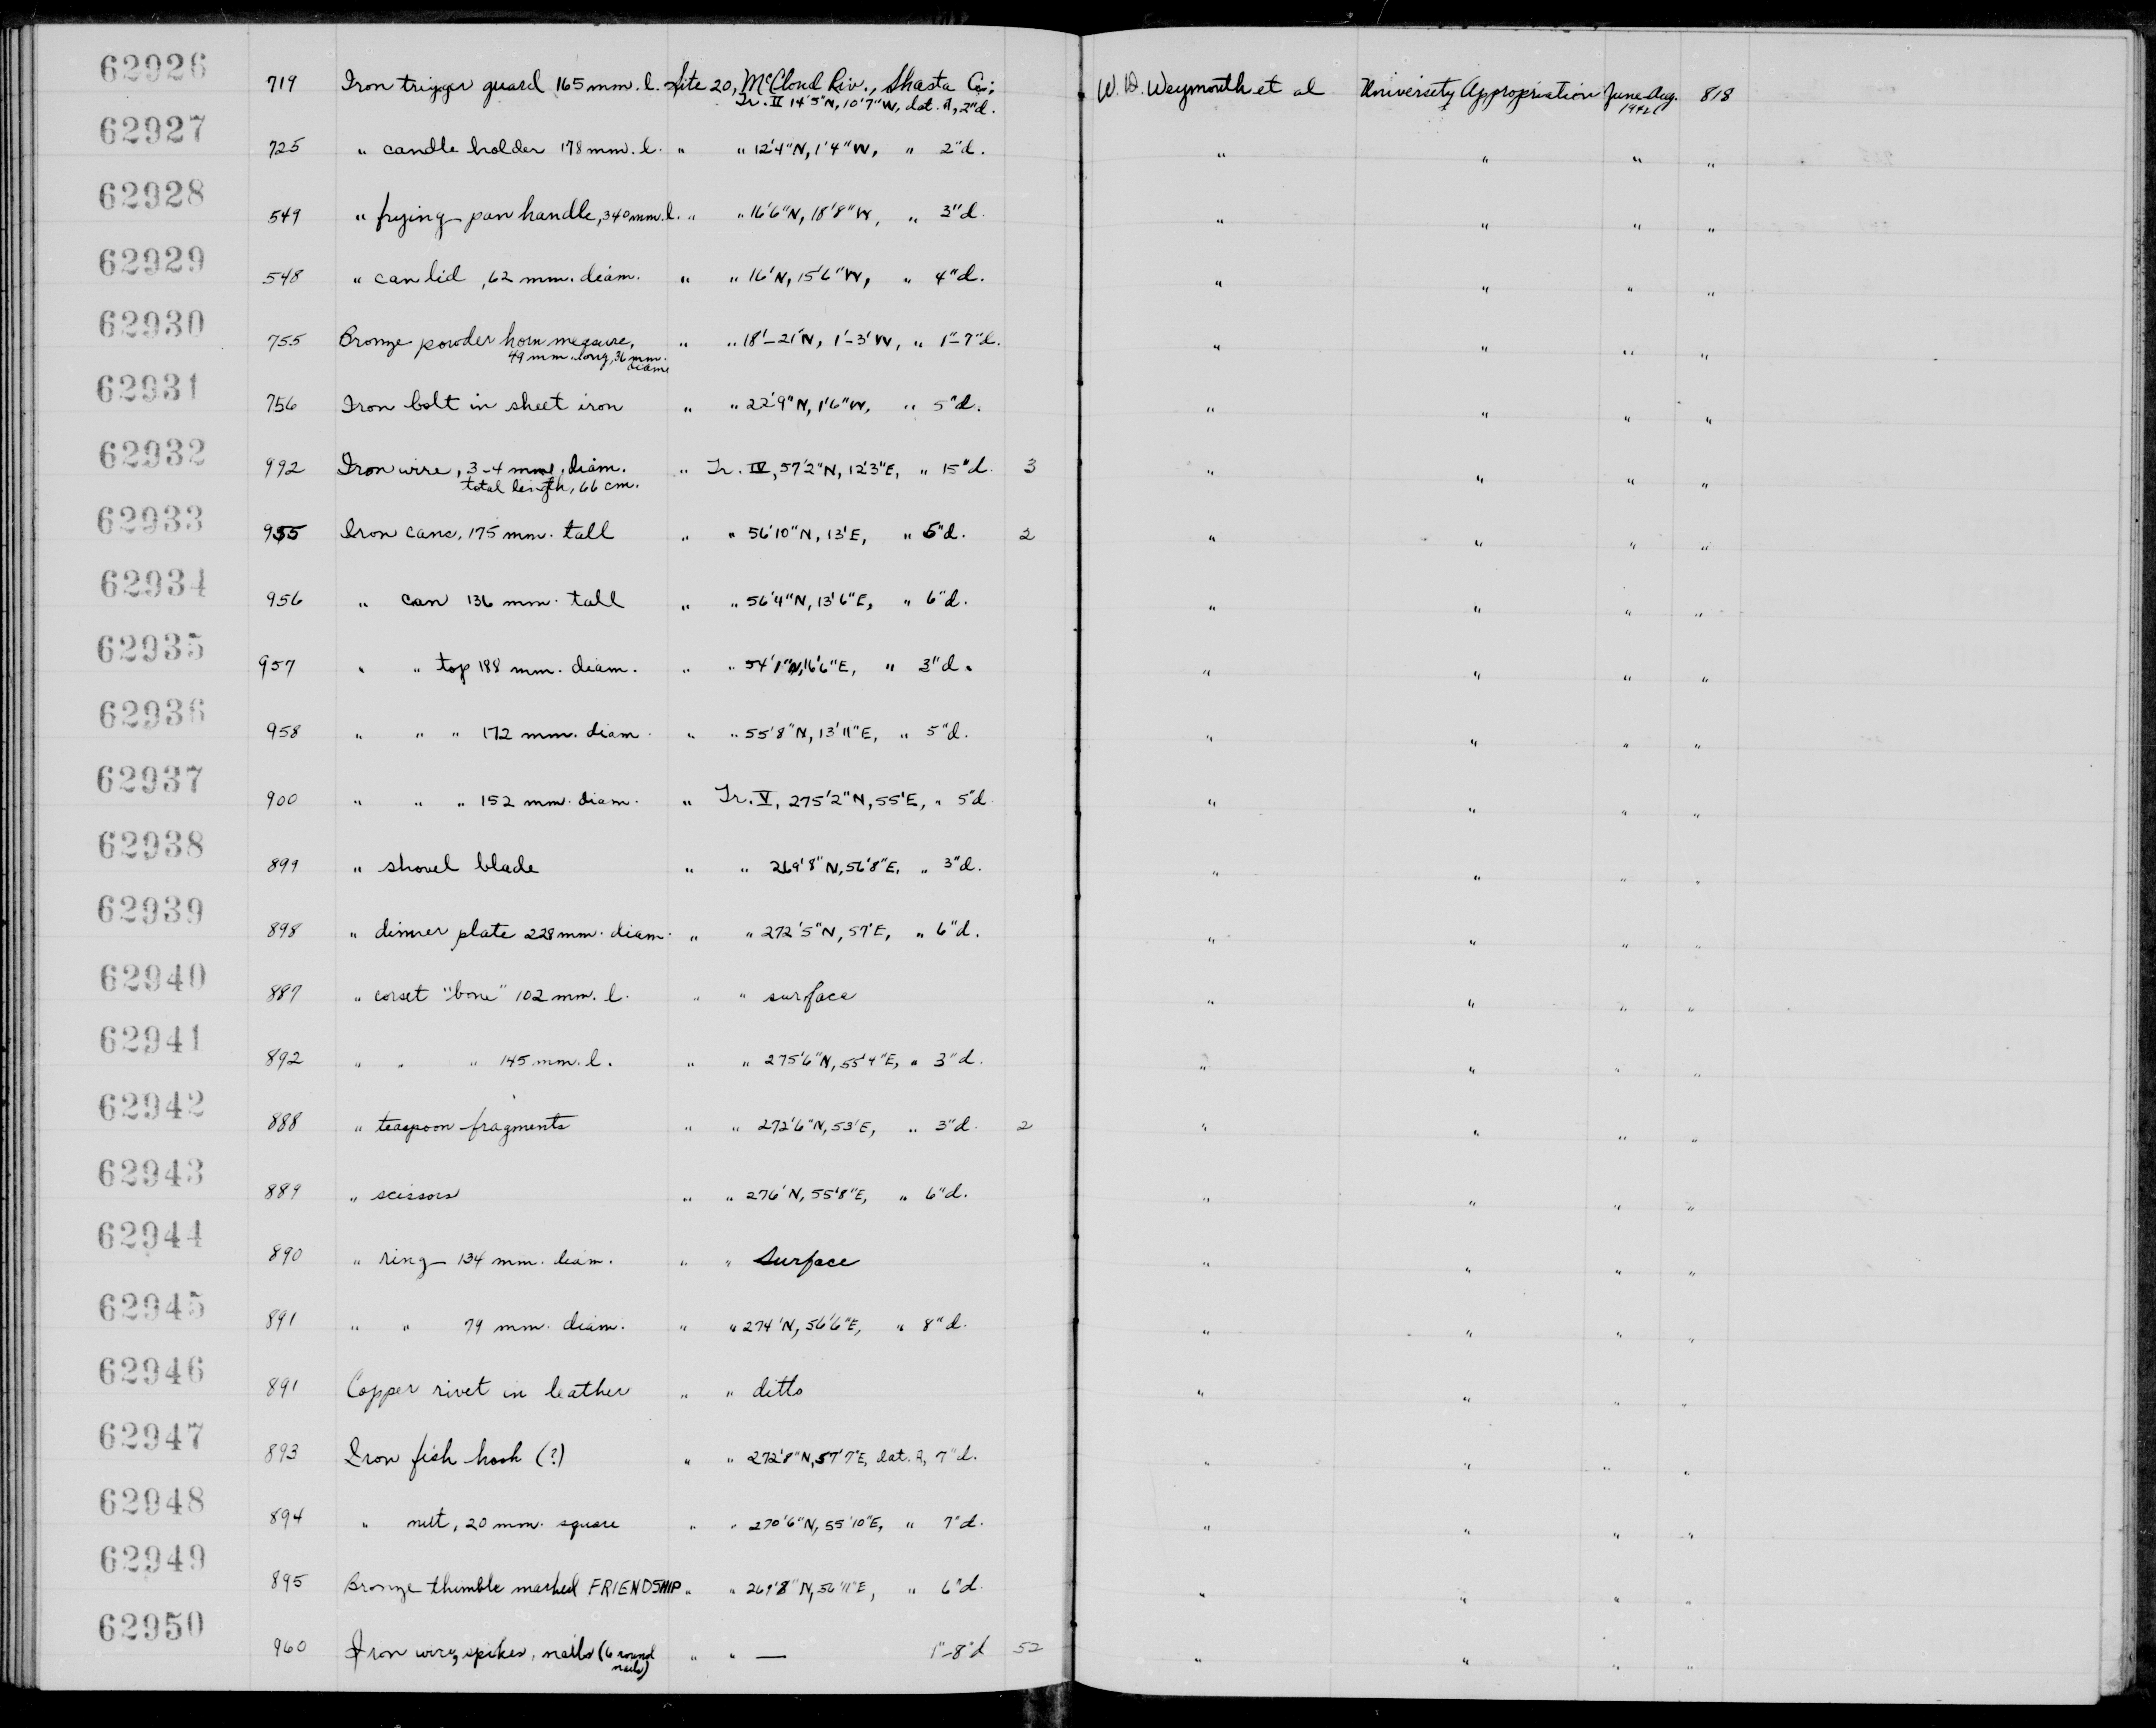 62926 719 Iron trigger guard 165 mm. l. Site 20, McCloud Riv., Shasta Co.; W. D. Weymouth et al University Appropriation June-Aug. 818
Tr. II 14'5"N, 10'7"W, dat. A, 2"d. 1942
62927 725 " candle holder 178 mm. l. " " 12'4"N, 1'4"W, " 2"d. " " " "
62928 549 " frying-pan handle, 340 mm. l. " " 16'6"N, 18'8"W, " 3"d. " " " "
62929 548 " can lid, 62 mm. diam. " " 16'N, 15'6"W, " 4"d. " " " "
62930 755 Bronze powder horn measure, " " 18'-21'N, 1'-3'W, " 1"-7"d. " " " "
49 mm. long, 36 mm. diam.
62931 756 Iron bolt in sheet iron " " 22'9"N, 1'6"W, " 5"d. " " " "
62932 992 Iron wire, 3-4 mm. diam. " Tr. IV, 57'2"N, 12'3"E, " 15"d. 3 " " " "
total length, 66 cm.
62933 955 Iron cans, 175 mm. tall " " 56'10"N, 13'E, " 5"d. 2 " " " "
62934 956 " can 136 mm. tall " " 56'4"N, 13'6"E, " 6"d. " " " "
62935 957 " " top 188 mm. diam. " " 54'1"N, 16'6"E, " 3"d. " " " "
62936 958 " " " 172 mm. diam. " " 55'8"N, 13'11"E, " 5"d. " " " "
62937 900 " " " 152 mm. diam. " Tr. V, 275'2"N, 55'E, " 5"d " " " "
62938 899 " shovel blade " " 269'8"N, 56'8"E, " 3"d. " " " "
62939 898 " dinner plate 228 mm. diam. " " 272'5"N, 57'E, " 6"d. " " " "
62940 887 " corset "bone" 102 mm. l. " " surface " " " "
62941 892 " " " 145 mm. l. " " 275'6"N, 55'4"E, " 3"d. " " " "
62942 888 " teaspoon fragments " " 272'6"N, 53'E, " 3"d. 2 " " " "
62943 889 " scissors " " 276'N, 55'8"E, " 6"d. " " " "
62944 890 " ring 134 mm. diam. " " Surface " " " "
62945 891 " " 79 mm. diam. " " 274'N, 56'6"E, " 8"d. " " " "
62946 891 Copper rivet in leather " " ditto " " " "
62947 893 Iron fish hook (?) " " 272'8"N, 57'7"E, dat. A, 7"d. " " " "
62948 894 " nut, 20 mm. square " " 270'6"N, 55'10"E, " 7"d. " " " "
62949 895 Bronze thimble marked FRIENDSHIP " " 269'8"N, 56'11"E, " 6"d. " " " "
62950 960 Iron wire, spikes, nails (6 round " " — 1"-8"d 52 " " " "
nails)